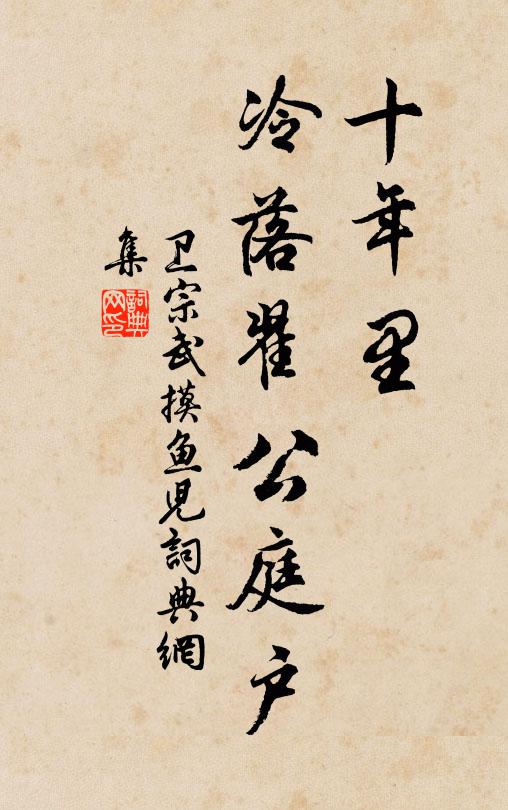 十年里
冷落翟公庭户
卫宗武摸鱼儿詞典網
集
詞典
网印